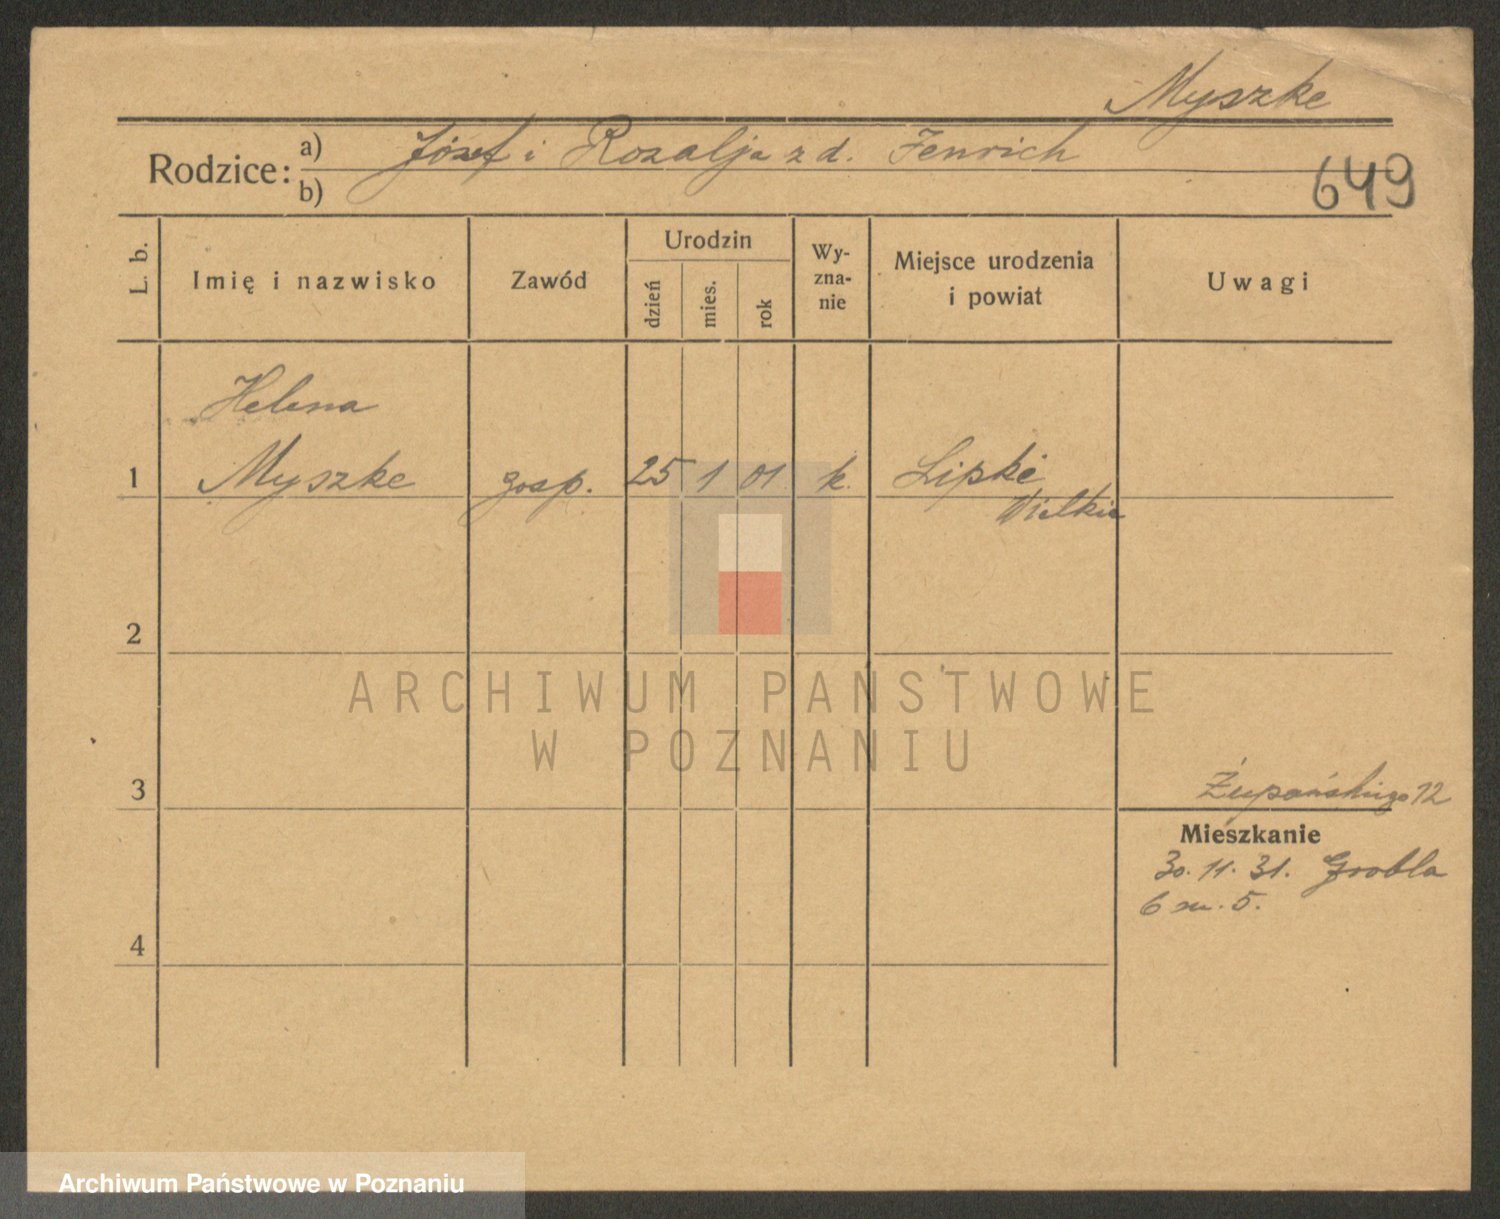 Myszke
Rodzice: a) Józef i Rozalja z d. Fenrich
b)
649
L. b.
Imię i nazwisko
Zawód
Urodzin
dzień
mies.
rok
Wy-
zna-
nie
Miejsce urodzenia
i powiat
Uwagi
Helena
1 Myszke gosp. 25 1 01 k. Lipké
Wielkie
2
ARCHIWUM PAŃSTWOWE
W POZNANIU
3
Żupańskiego 12
Mieszkanie
30. 11. 31. Grobla
6 m. 5.
4
Archiwum Państwowe w Poznaniu